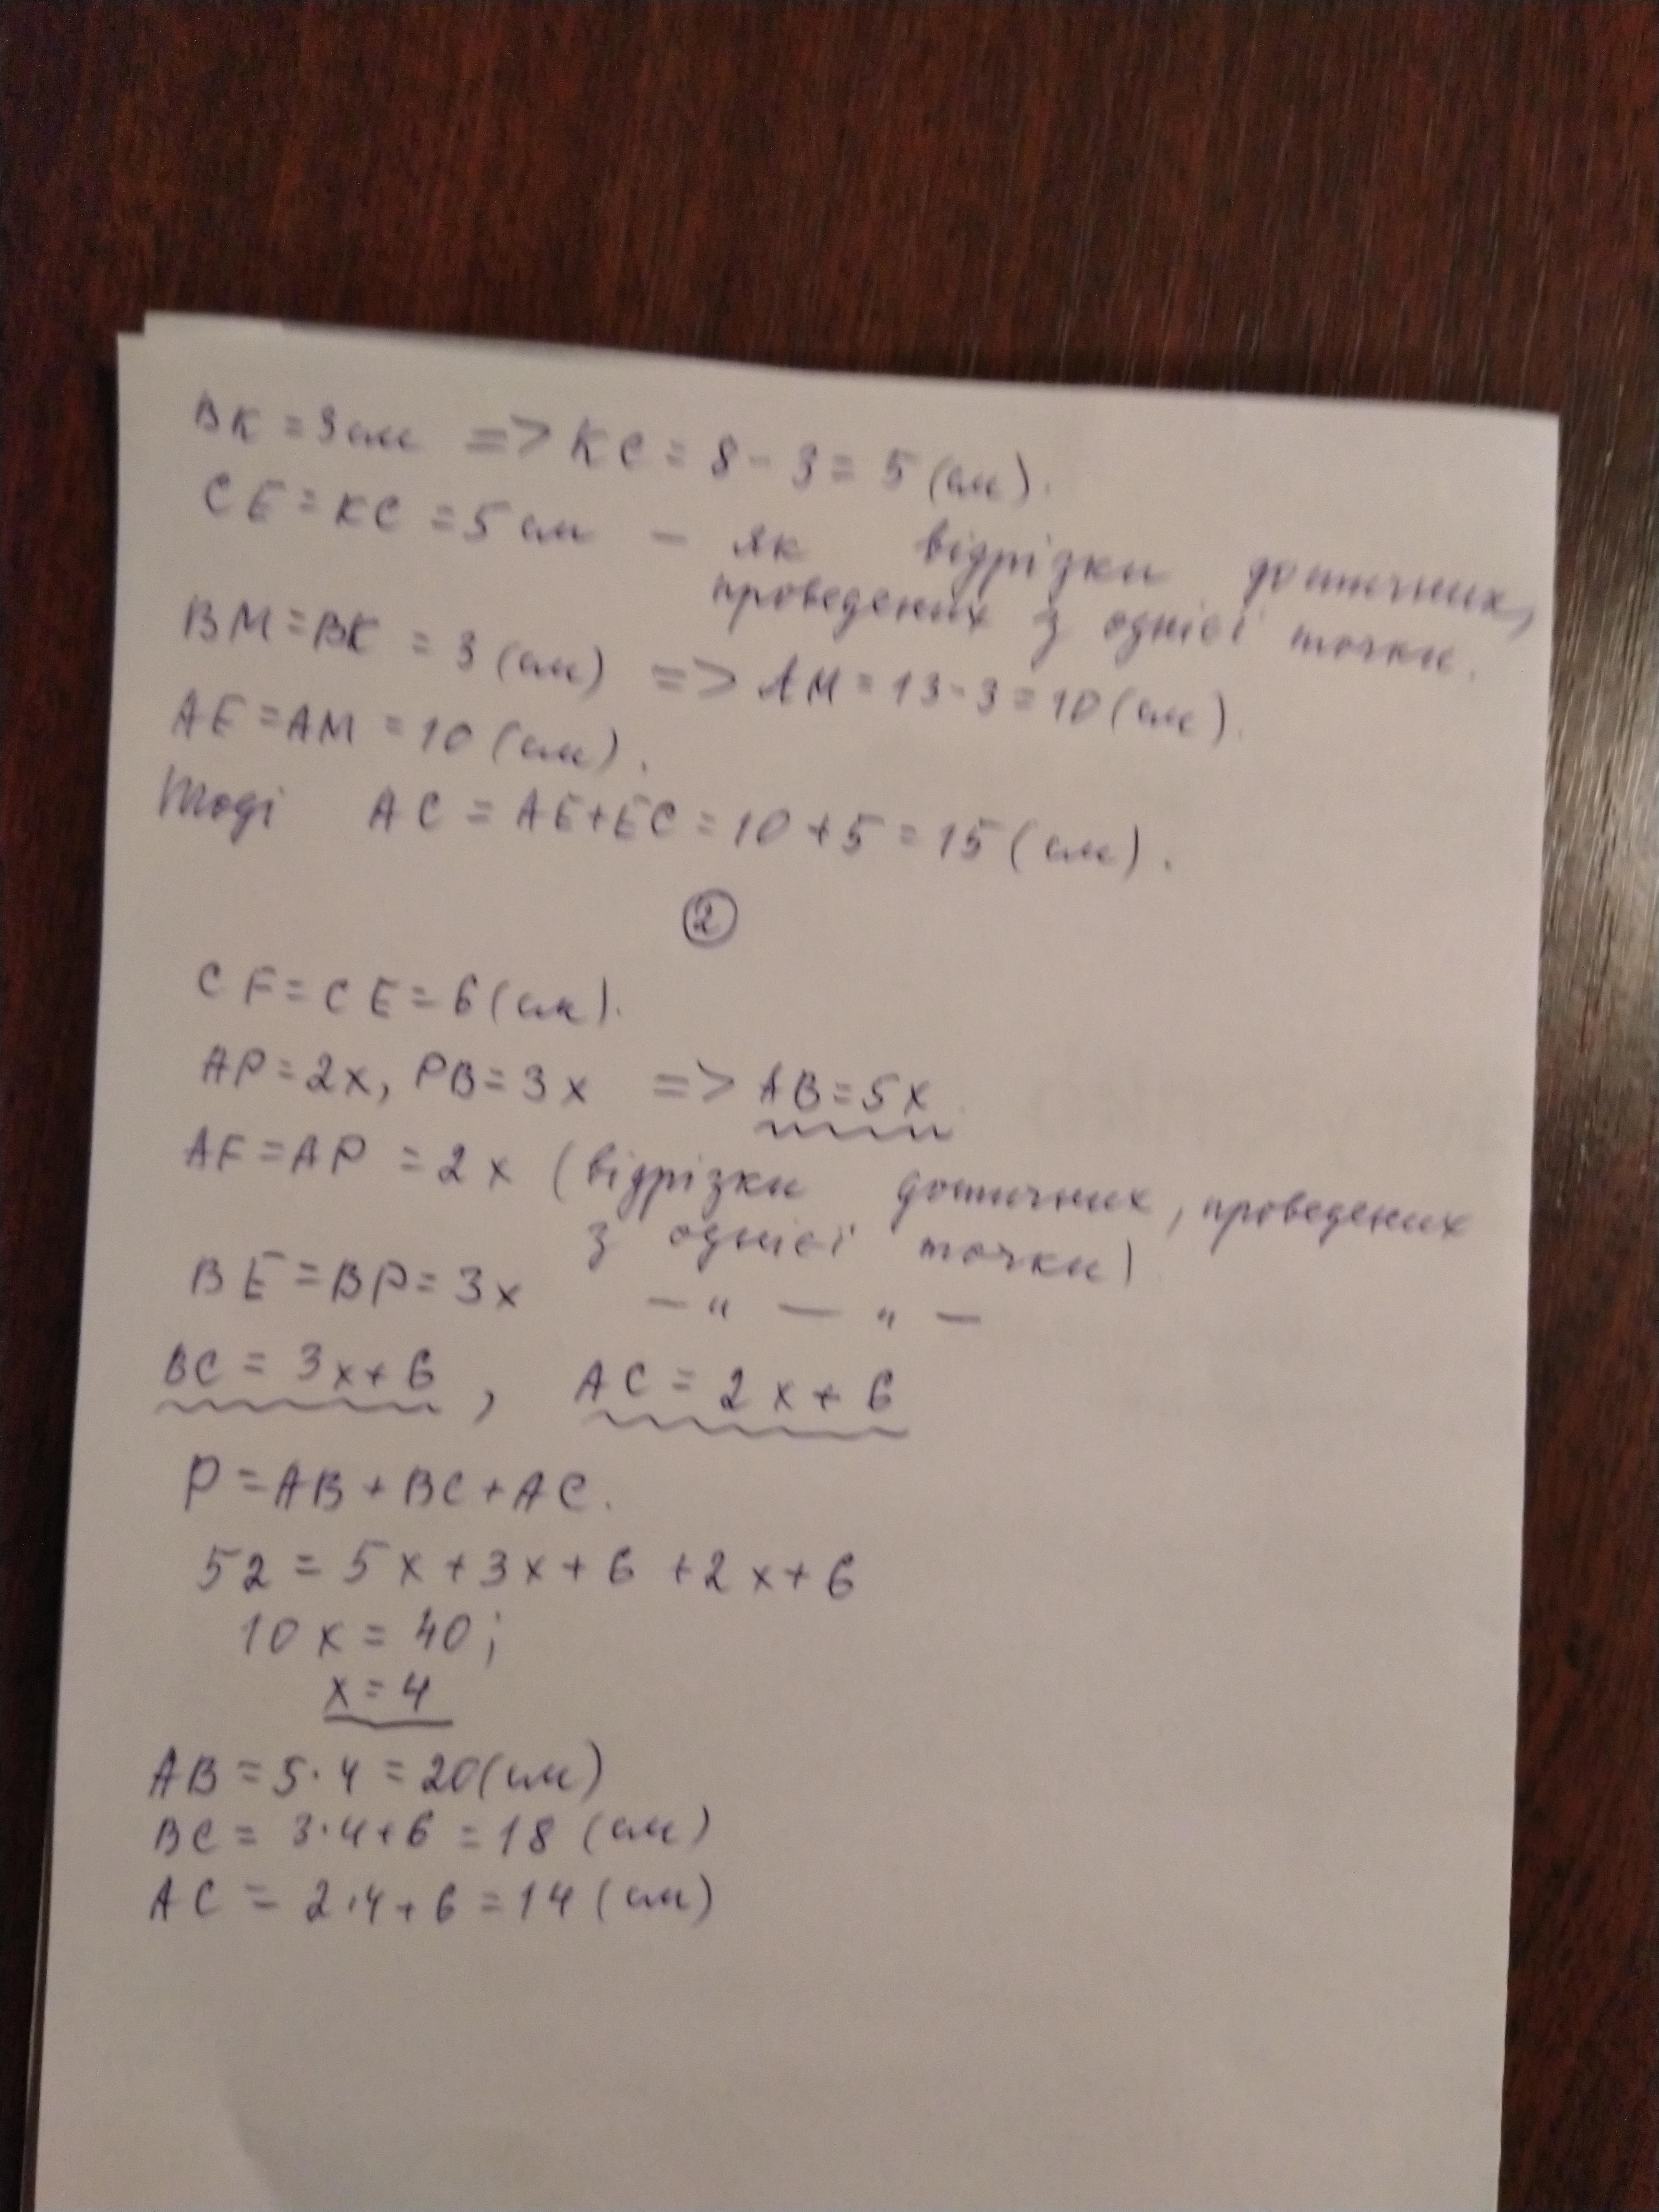 BK = 3 см => KC = 8 - 3 = 5 (см).
CE = KC = 5 см — як відрізки дотичних,
проведених з однієї точки.
BM = BK = 3 (см) => AM = 13 - 3 = 10 (см).
AE = AM = 10 (см).
Тоді AC = AE + EC = 10 + 5 = 15 (см).
2
CF = CE = 6 (см).
AP = 2x, PB = 3x => AB = 5x
AF = AP = 2x (відрізки дотичних, проведених
з однієї точки)
BE = BP = 3x — " — " —
BC = 3x + 6, AC = 2x + 6
P = AB + BC + AC.
52 = 5x + 3x + 6 + 2x + 6
10x = 40;
x = 4
AB = 5·4 = 20 (см)
BC = 3·4 + 6 = 18 (см)
AC = 2·4 + 6 = 14 (см)